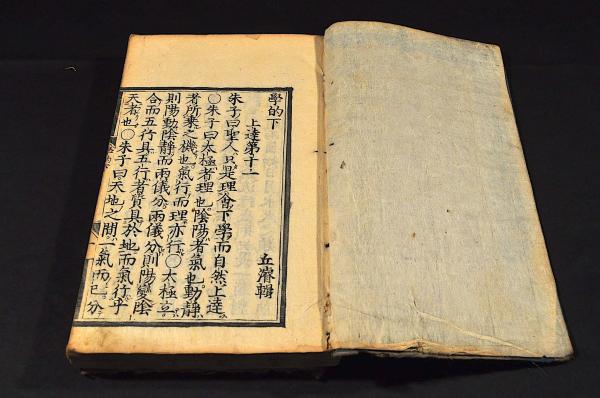 學的下
丘濬輯
上達第十一
朱子曰聖人只是理會下學而自然上達
○朱子曰太極者理也陰陽者氣也動靜
者所乘之機也氣行而理亦行○太極立
則陽動陰靜而兩儀分兩儀分則陽變陰
合而五行具五行者質具於地而氣行乎
天者也○朱子曰天地之間一氣而已分